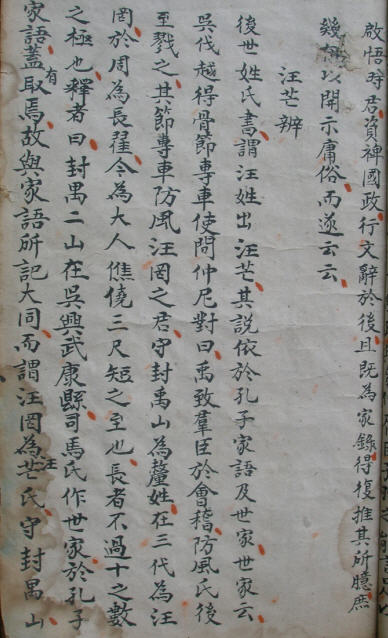 啟悟時君資裨國政行文辭於後且既為家錄得復推其所臆庶
幾以開示庸俗而遂云云
汪芒辨
後世姓氏書謂汪姓出汪芒其說依於孔子家語及世家世家云
吳伐越得骨節專車使問仲尼對曰禹致羣臣於會稽防風氏後
至戮之其節專車防風汪罔之君守封禹山為釐姓在三代為汪
罔於周為長翟今為大人僬僥三尺短之至也長者不過十之數
之極也釋者曰封禺二山在吳興武康縣司馬氏作世家於孔子
家語蓋有取焉故與家語所記大同而謂汪罔為汪芒氏守封禺山